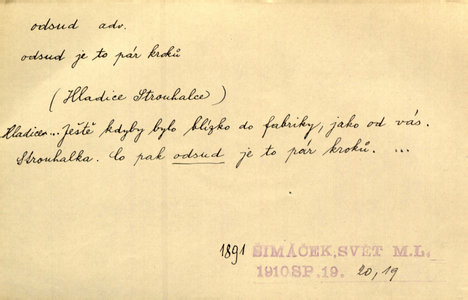 odsud adv.
odsud je to pár kroků
(Hladice Strouhalce)
Hladice... Ještě kdyby bylo blízko do fabriky, jako od vás.
Strouhalka. Co pak odsud je to pár kroků. ...
1891 ŠIMÁČEK, SVĚT M.L.
1910SP.19. 20,19